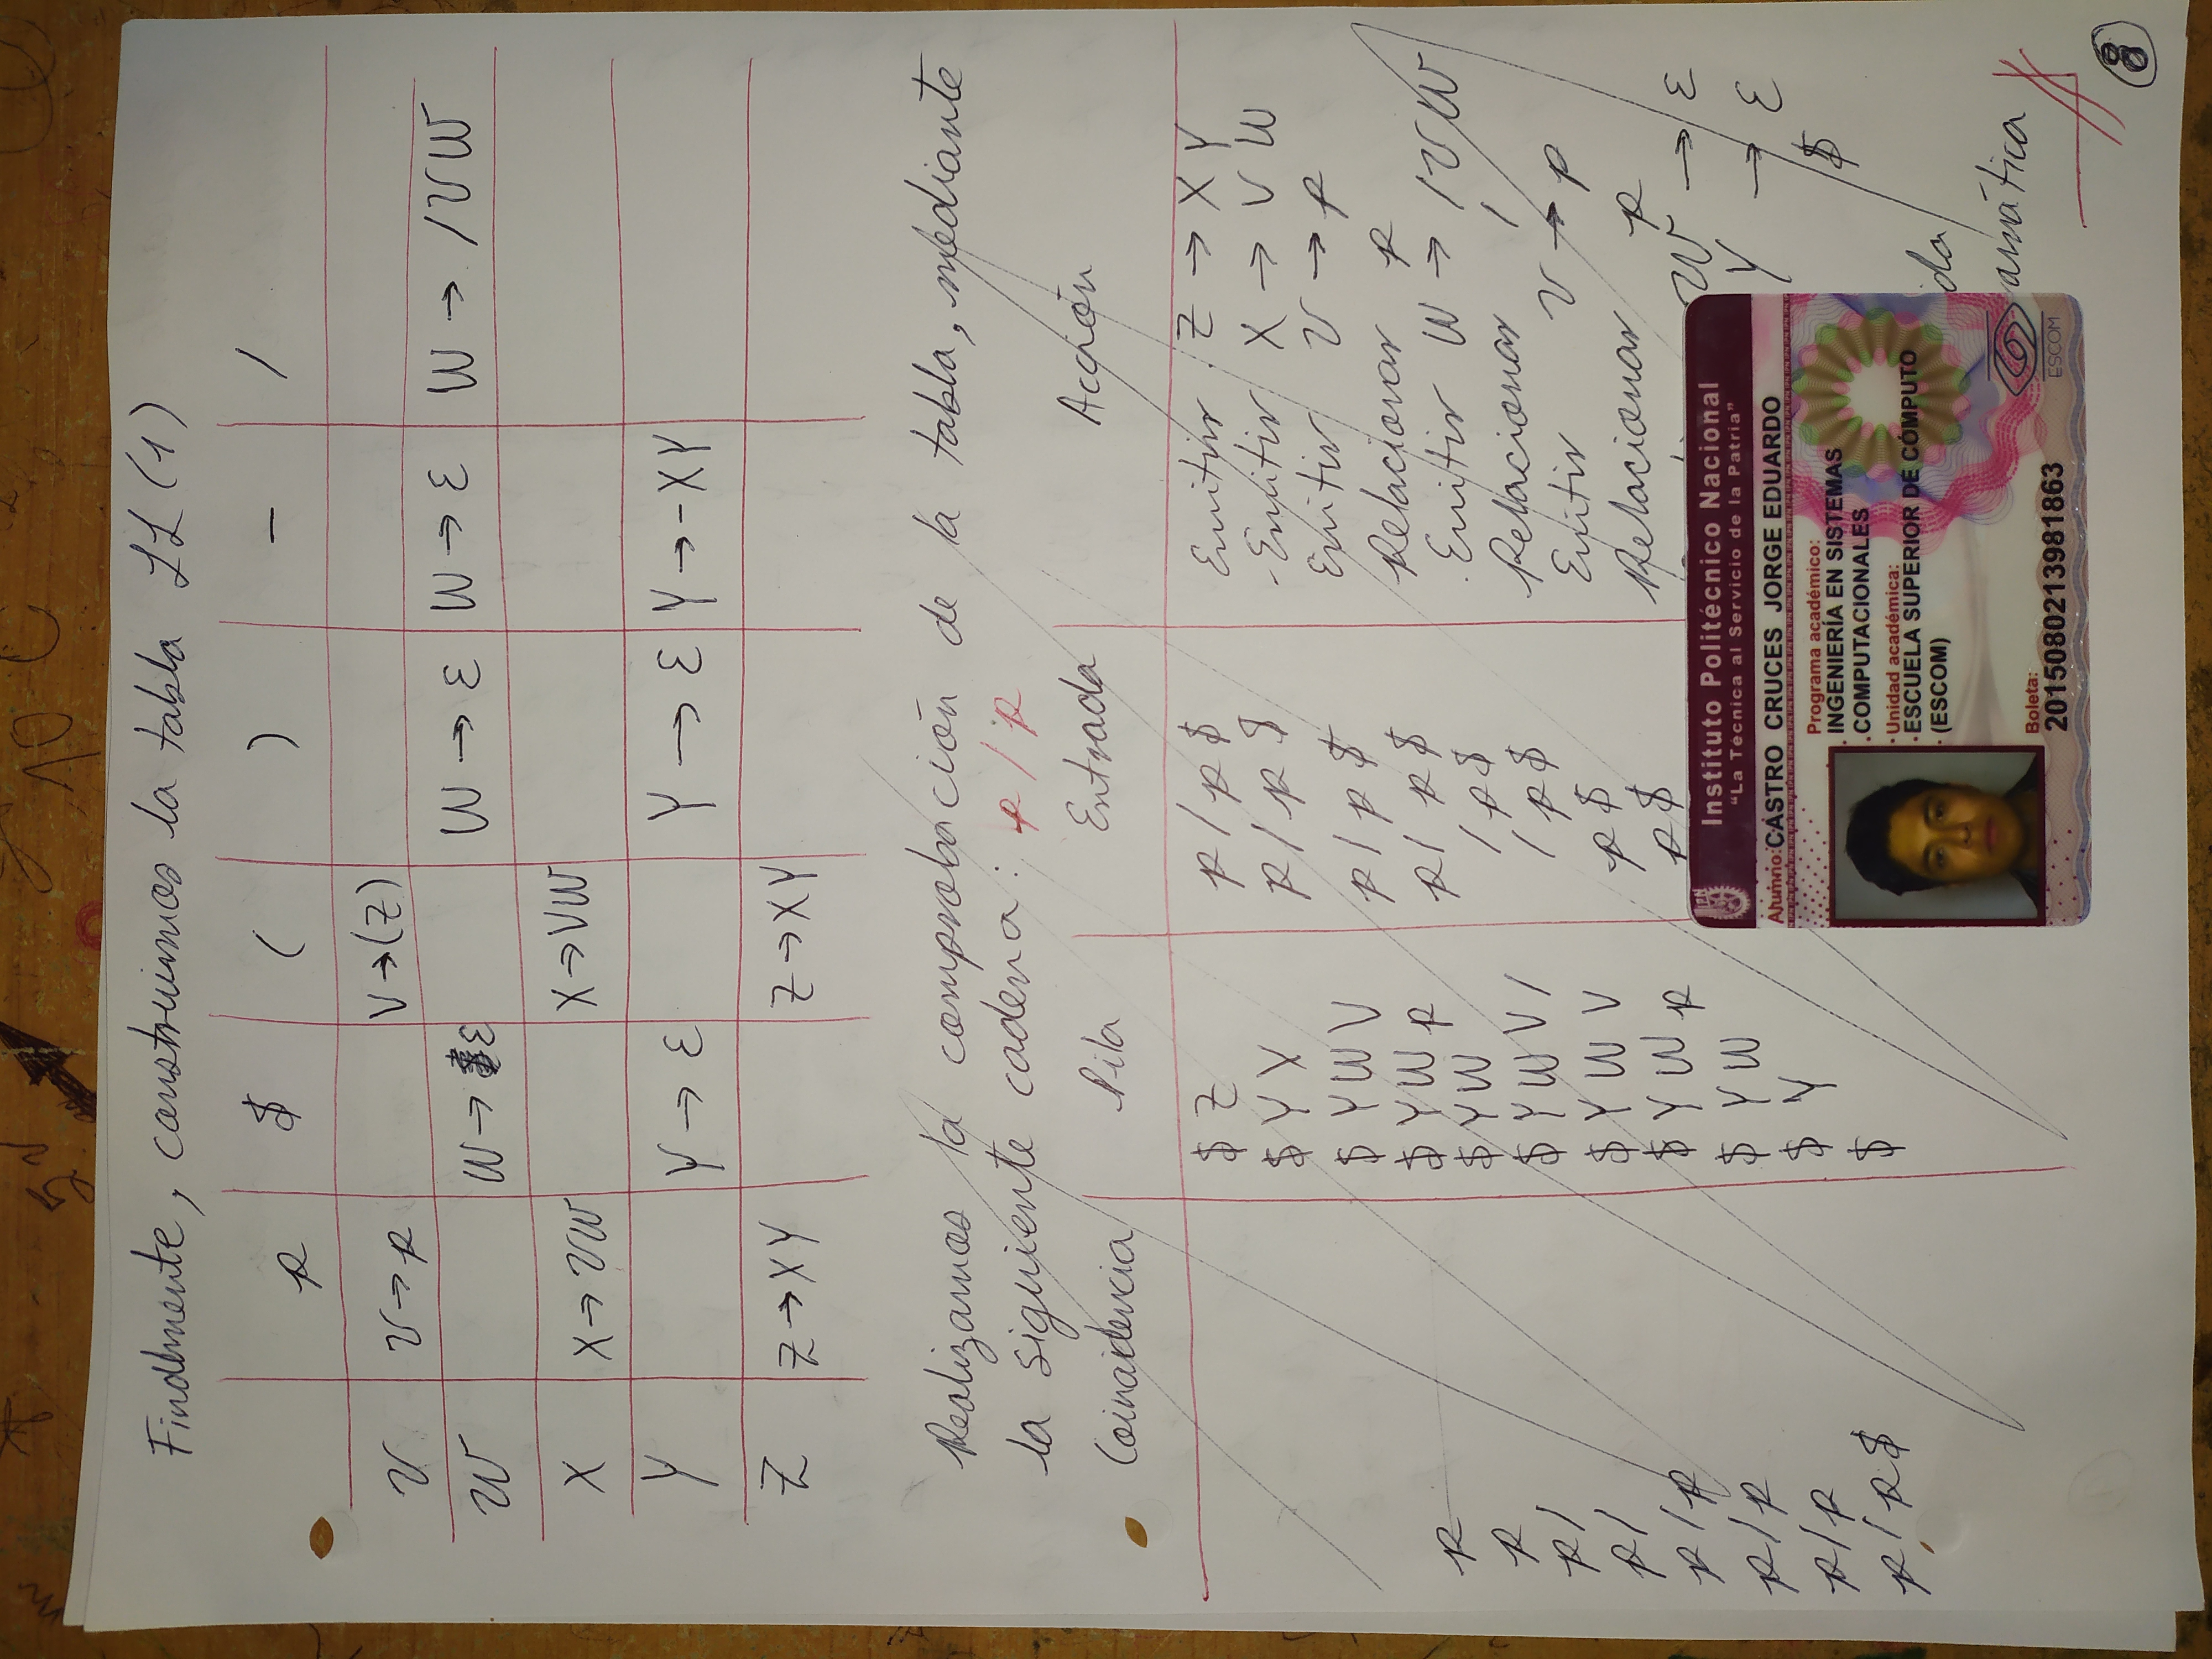 Finalmente, construimos la tabla LL (1)
p $ ( ) - /
V V → p V → (Z)
W W → ε W → ε W → ε W → / V W
X X → V W X → V W
Y Y → ε Y → ε Y → - X Y
Z Z → X Y Z → X Y
Realizamos la comprobación de la tabla, mediante
la siguiente cadena: p / p
Coincidencia Pila Entrada Acción
$ Z p / p $ Emitir Z → X Y
$ Y X p / p $ Emitir X → V W
$ Y W V p / p $ Emitir V → p
$ Y W p p / p $ Relacionar p
p $ Y W / p $ Emitir W → / V W
p $ Y W V / / p $ Relacionar /
p / $ Y W V p $ Emitir V → p
p / $ Y W p p $ Relacionar p
p / p $ Y W W → ε
p / p $ Y Y → ε
p / p $ $
p / p $
da
amática
8
IPN
Instituto Politécnico Nacional
"La Técnica al Servicio de la Patria"
Alumno: CASTRO CRUCES JORGE EDUARDO
Programa académico:
INGENIERÍA EN SISTEMAS
COMPUTACIONALES
Unidad académica:
ESCUELA SUPERIOR DE CÓMPUTO
(ESCOM)
Boleta:
2015080213981863
ESCOM
5 v
10 C